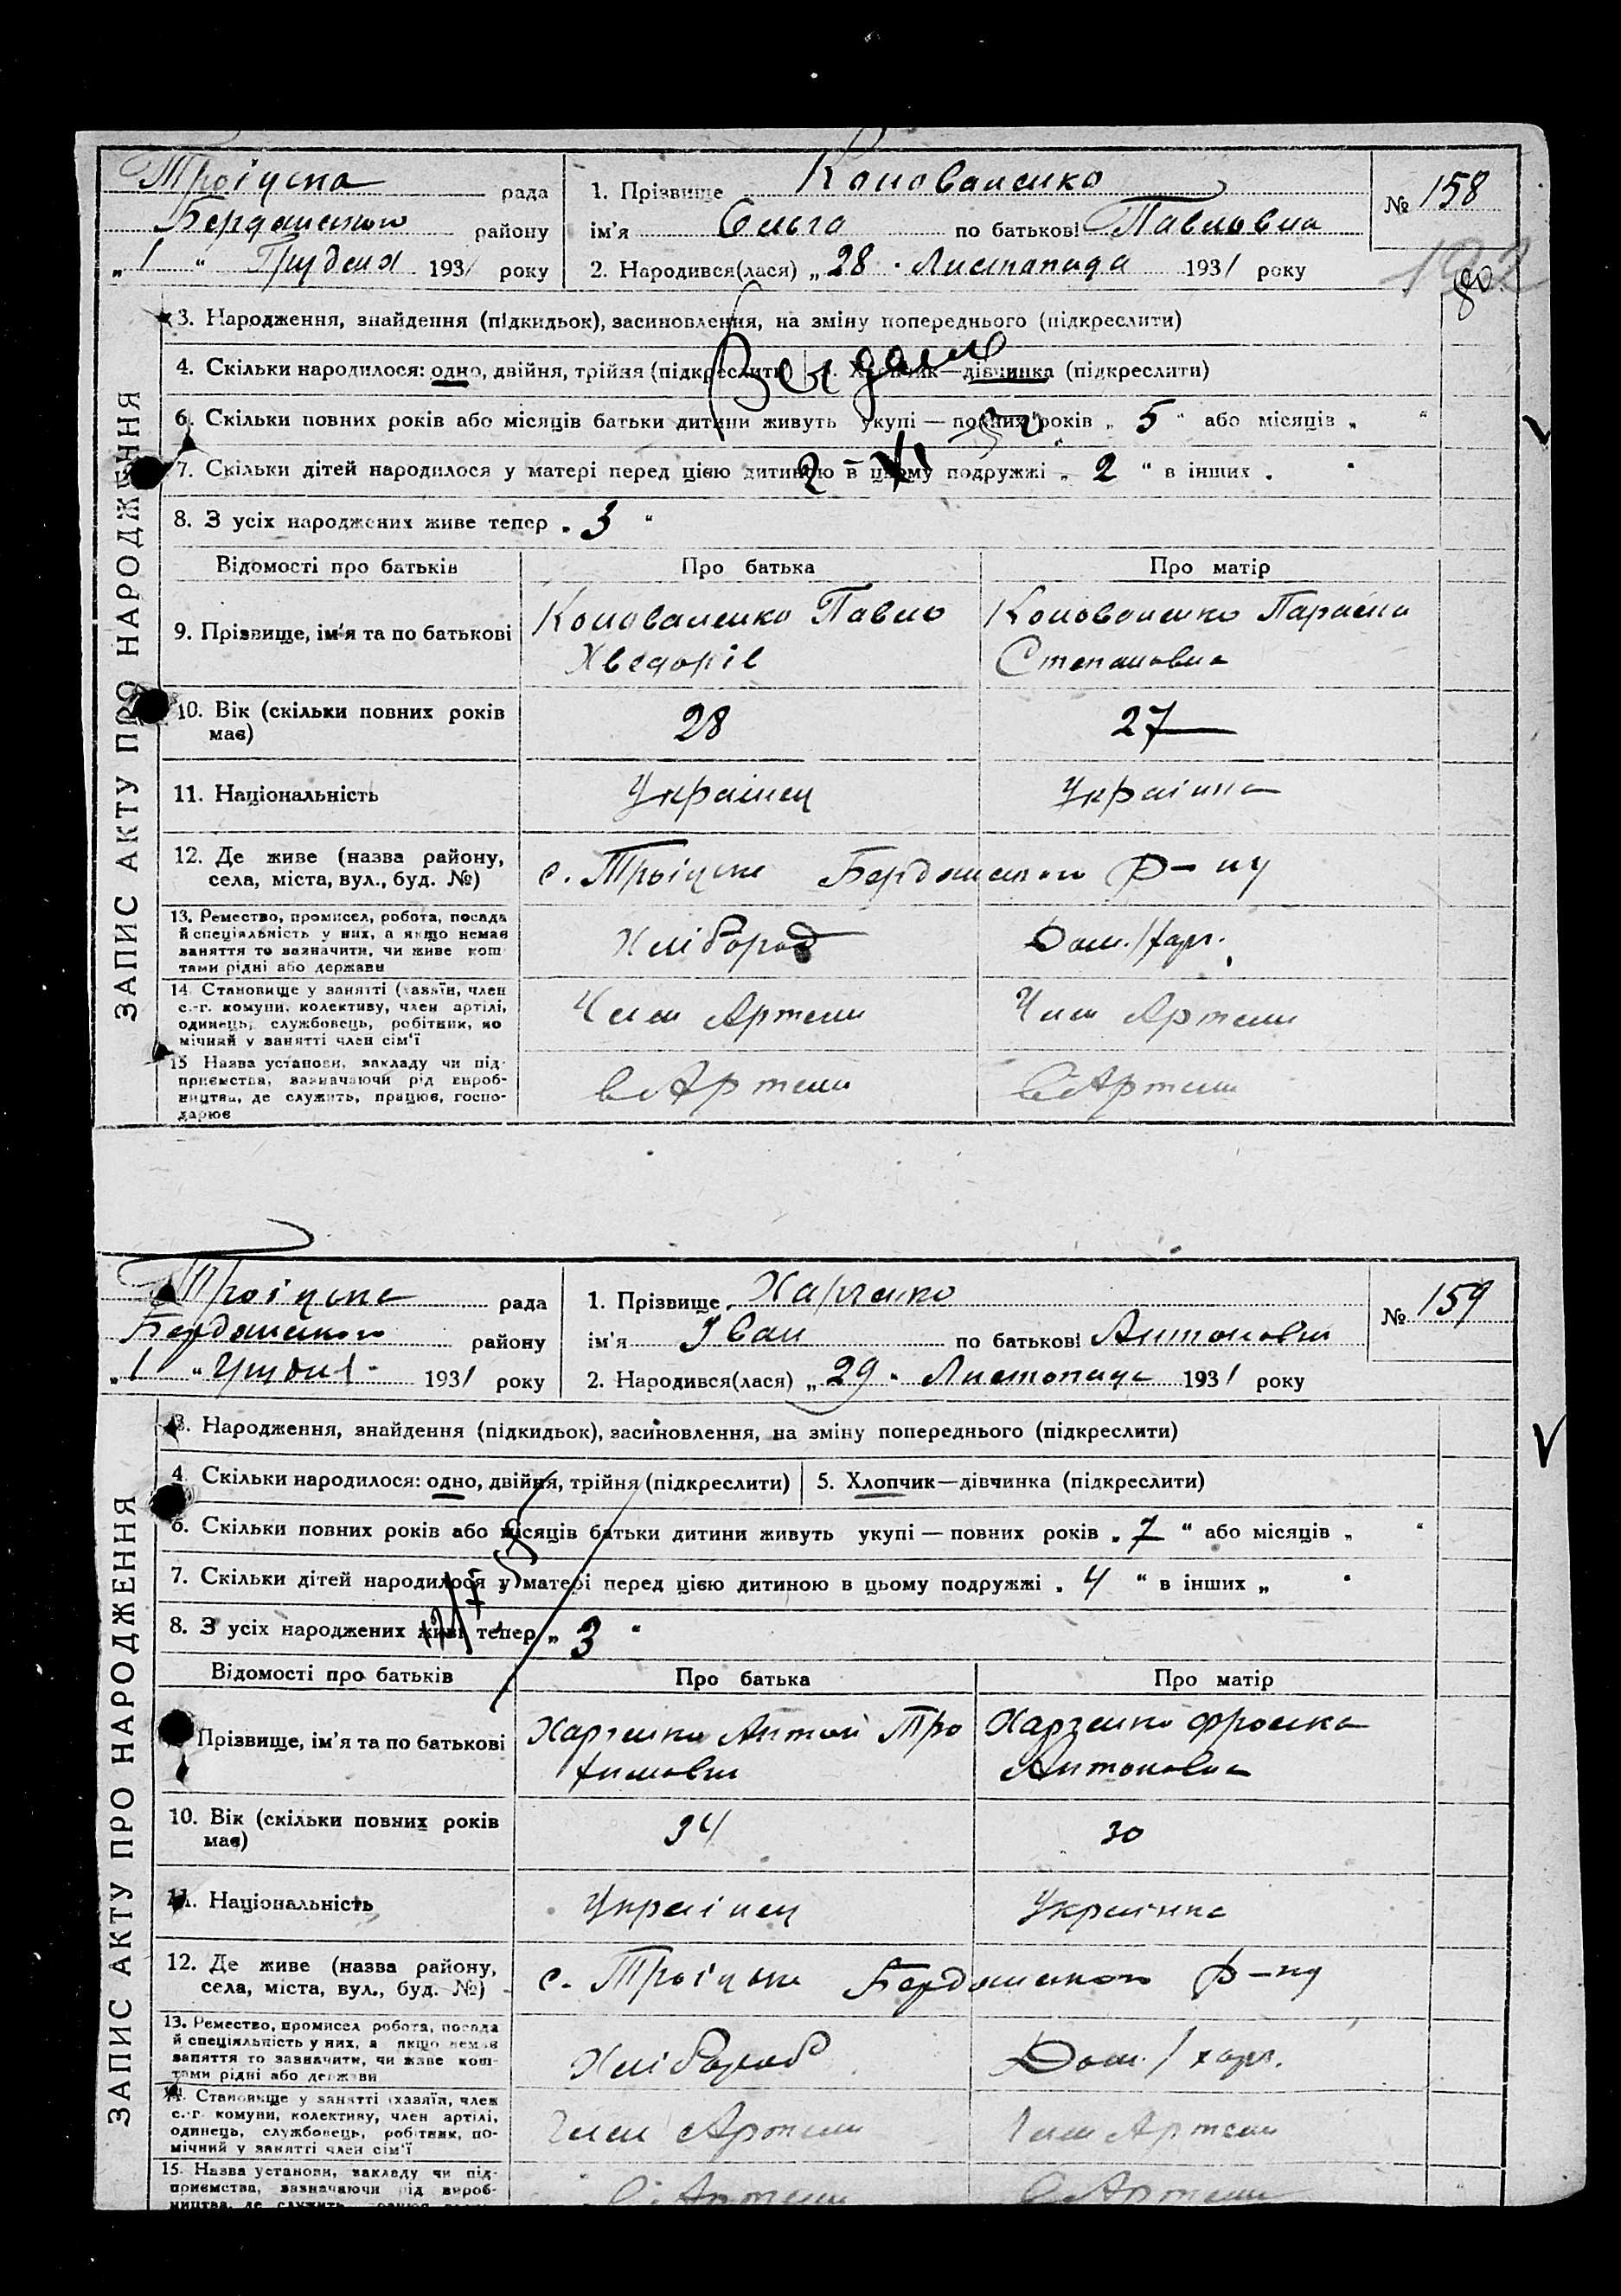 Троіцька рада
Бердянського району
„ 1 “ Грудня 1931 року
1. Прізвище Коноваленко
ім'я Ольга по батькові Павловна
2. Народився(лася) „ 28 “ Листопада 1931 року
№ 158
80
ЗАПИС АКТУ ПРО НАРОДЖЕННЯ
3. Народження, знайдення (підкидьок), засиновлення, на зміну попереднього (підкреслити)
4. Скільки народилося: одно, двійня, трійня (підкреслити) 5. Хлопчик—дівчинка (підкреслити)
6. Скільки повних років або місяців батьки дитини живуть укупі — повних років „ 5 “ або місяців „ “
7. Скільки дітей народилося у матері перед цією дитиною в цьому подружжі „ 2 “ в інших „ “
8. З усіх народжених живе тепер „ 3 “
Відомості про батьків Про батька Про матір
9. Прізвище, ім'я та по батькові
Коноваленко Павло
Хведорів
Коноваленко Параска
Степановна
10. Вік (скільки повних років
має)
28
27
11. Національність Українец Українка
12. Де живе (назва району,
села, міста, вул., буд. №)
с. Троіцьке Бердянського р-ну
13. Ремество, промисел, робота, посада
й спеціяльність у них, а якщо немає
заняття то зазначити, чи живе кош-
тами рідні або держави
Хлібороб
Дом./харз.
14. Становище у занятті (хазяїн, член
с.-г. комуни, колективу, член артілі,
одинець, службовець, робітник, по
мічний у занятті член сім'ї
Член Артели
Член Артели
15 Назва установи, закладу чи під-
приємства, зазначаючи рід вироб-
ництва, де служить, працює, госпо-
дарює
в Артели
в Артели
Троіцька рада
Бердянського району
„ 1 “ Грудня 1931 року
1. Прізвище Харченко
ім'я Іван по батькові Антонович
2. Народився(лася) „ 29 “ Листопада 1931 року
№ 159
ЗАПИС АКТУ ПРО НАРОДЖЕННЯ
3. Народження, знайдення (підкидьок), засиновлення, на зміну попереднього (підкреслити)
4. Скільки народилося: одно, двійня, трійня (підкреслити) 5. Хлопчик—дівчинка (підкреслити)
6. Скільки повних років або місяців батьки дитини живуть укупі — повних років „ 7 “ або місяців „ “
7. Скільки дітей народилося у матері перед цією дитиною в цьому подружжі „ 4 “ в інших „ “
8. З усіх народжених живе тепер „ 3 “
Відомості про батьків Про батька Про матір
Прізвище, ім'я та по батькові
Харченко Антон Тро
химович
Харченко Фроська
Антоновна
10. Вік (скільки повних років
має)
34
30
11. Національність Українец Українка
12. Де живе (назва району,
села, міста, вул., буд. №)
с. Троіцьке Бердянського р-ну
13. Ремество, промисел робота, посада
й спеціяльність у них, а якщо немає
заняття то зазначити, чи живе кош-
тами рідні або держави
Хлібороб
Дом./харз.
14. Становище у занятті (хазяїн, член
с.-г. комуни, колективу, член артілі,
одинець, службовець, робітник, по-
мічний у занятті член сім'ї
Член Артели
Член Артели
15. Назва установи, закладу чи під-
приємства, зазначаючи рід вироб-
ництва, де служить, працює
в Артели
в Артели